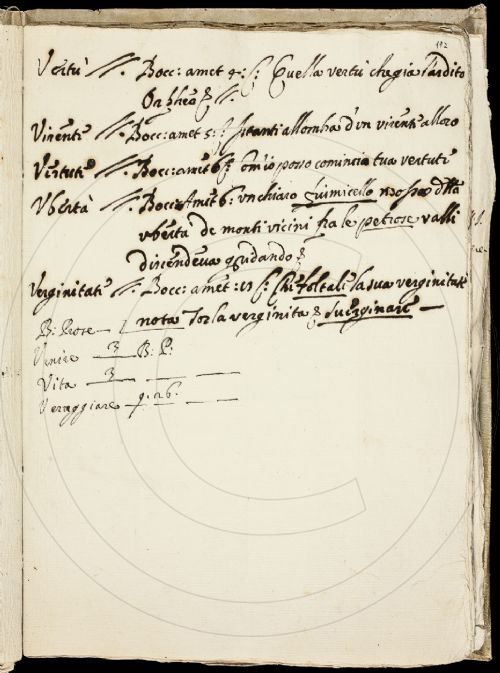 112
Vertù //. Bocc: amet 4: f: Quella vertù che gia l'ardito
Orpheo &. //.
Virenti //. Bocc: amet 5: f: stanti all'ombra d'un virenti alloro
Vertuti //. Bocc: amet 6 f: comincio tua vertuti
Vbertà //. Bocc: Amet 6: un chiaro fiumicello
vbertà de monti vicini fra le petrose valli
discendeua gridando &
Verginitati //. Bocc: amet: f: Chi toltali la sua verginitati
nota Tor la verginita & suerginare —
B: Prose —
Venire 3 B: P:
Vita 3 — —
Verdggiare